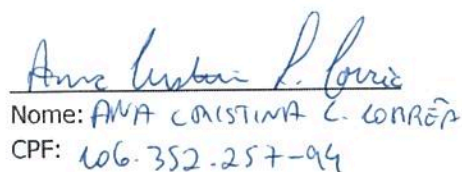 Ana Cristina L. Corrêa
Nome: ANA CRISTINA L. CORRÊA
CPF: 106.352.257-94